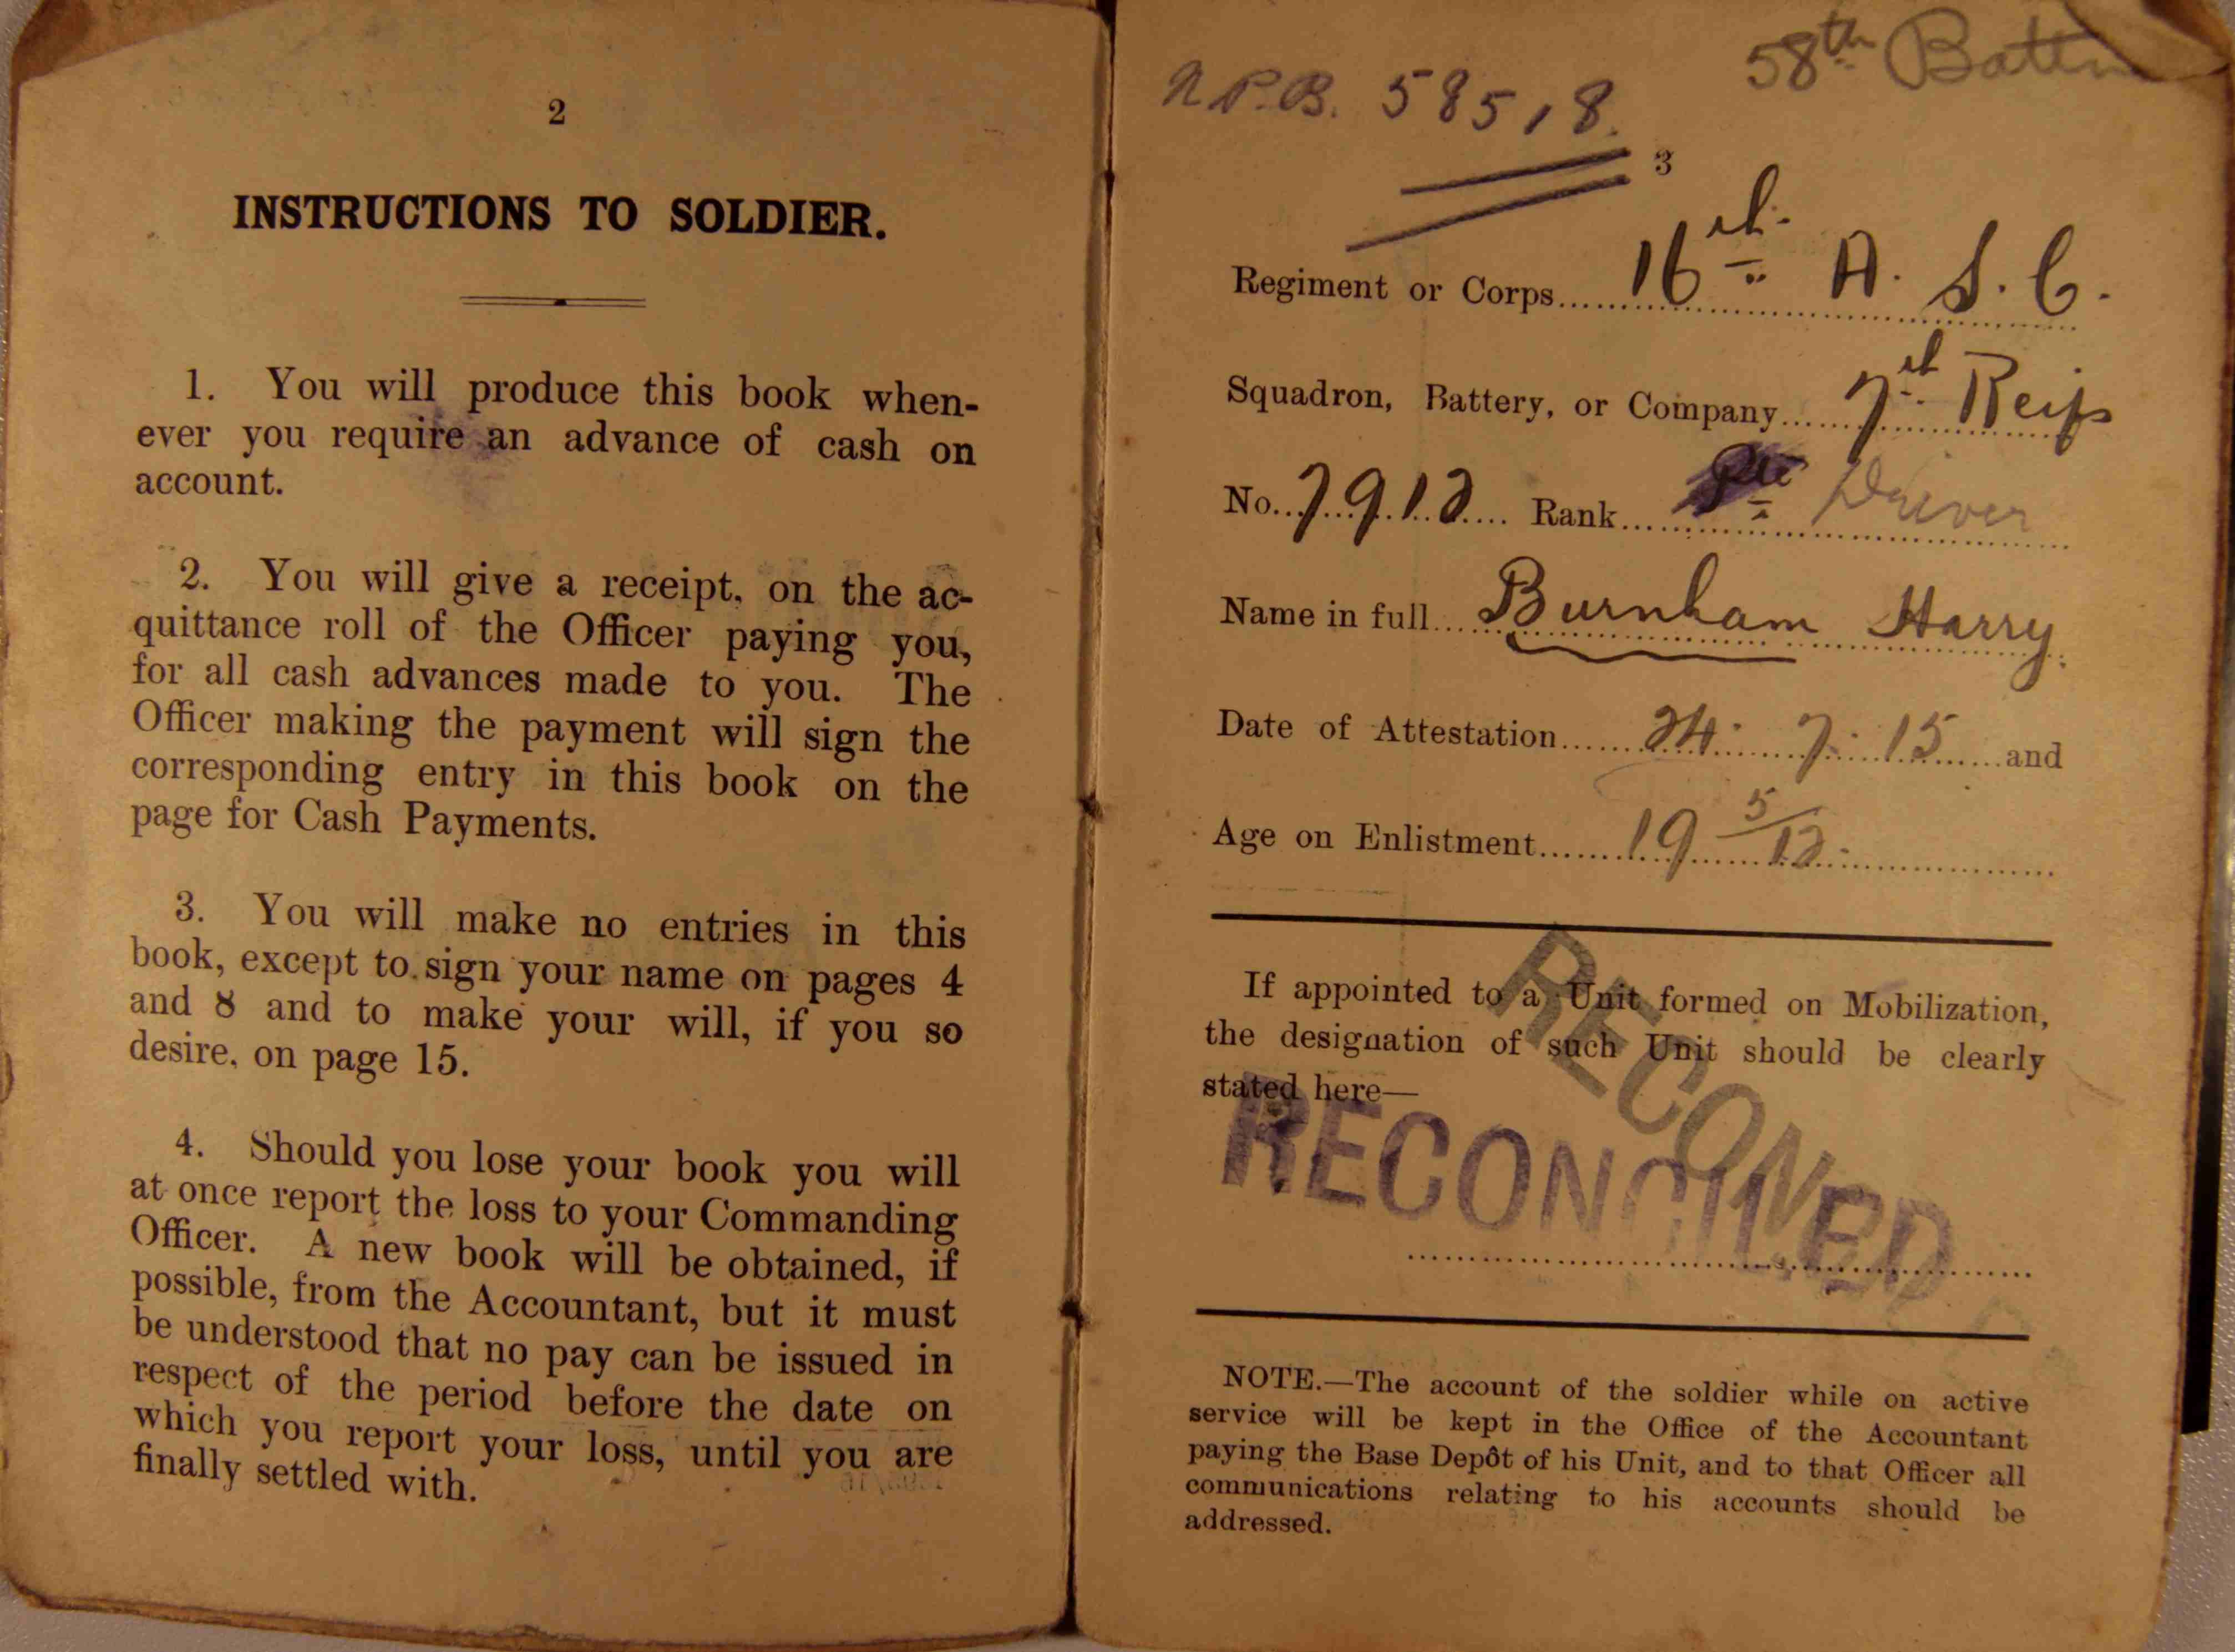 2
INSTRUCTIONS TO SOLDIER.
1. You will produce this book when-
ever you require an advance of cash on
account.
2. You will give a receipt, on the ac-
quittance roll of the Officer paying you,
for all cash advances made to you. The
Officer making the payment will sign the
corresponding entry in this book on the
page for Cash Payments.
3. You will make no entries in this
book, except to sign your name on pages 4
and 8 and to make your will, if you so
desire, on page 15.
4. Should you lose your book you will
at once report the loss to your Commanding
Officer. A new book will be obtained, if
possible, from the Accountant, but it must
be understood that no pay can be issued in
respect of the period before the date on
which you report your loss, until you are
finally settled with.
58th Battn
N.P.B. 58518.
3
Regiment or Corps 16th A. S. C.
Squadron, Battery, or Company 7th Reifs
No. 7912 Rank Pte Driver
Name in full Burnham Harry.
Date of Attestation 24. 7. 15 and
Age on Enlistment 19 5/12
If appointed to a Unit formed on Mobilization,
the designation of such Unit should be clearly
stated here—
RECONCILED
NOTE.—The account of the soldier while on active
service will be kept in the Office of the Accountant
paying the Base Depôt of his Unit, and to that Officer all
communications relating to his accounts should be
addressed.